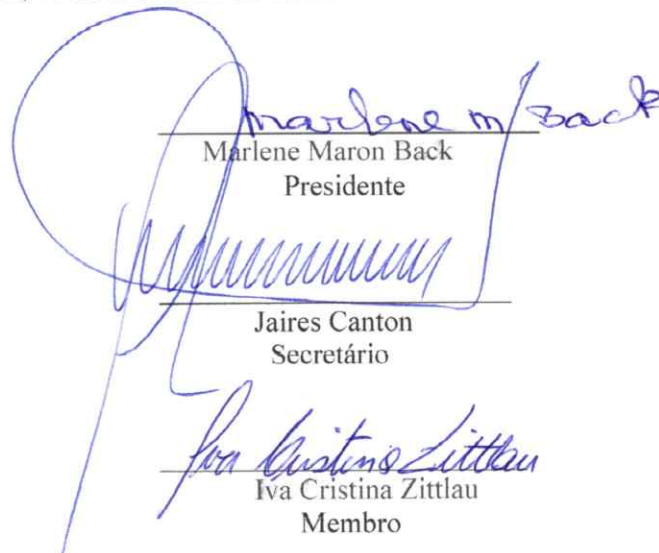 marlene m Back
Marlene Maron Back
Presidente
Jaires Canton
Secretário
Iva Cristina Zittlau
Iva Cristina Zittlau
Membro